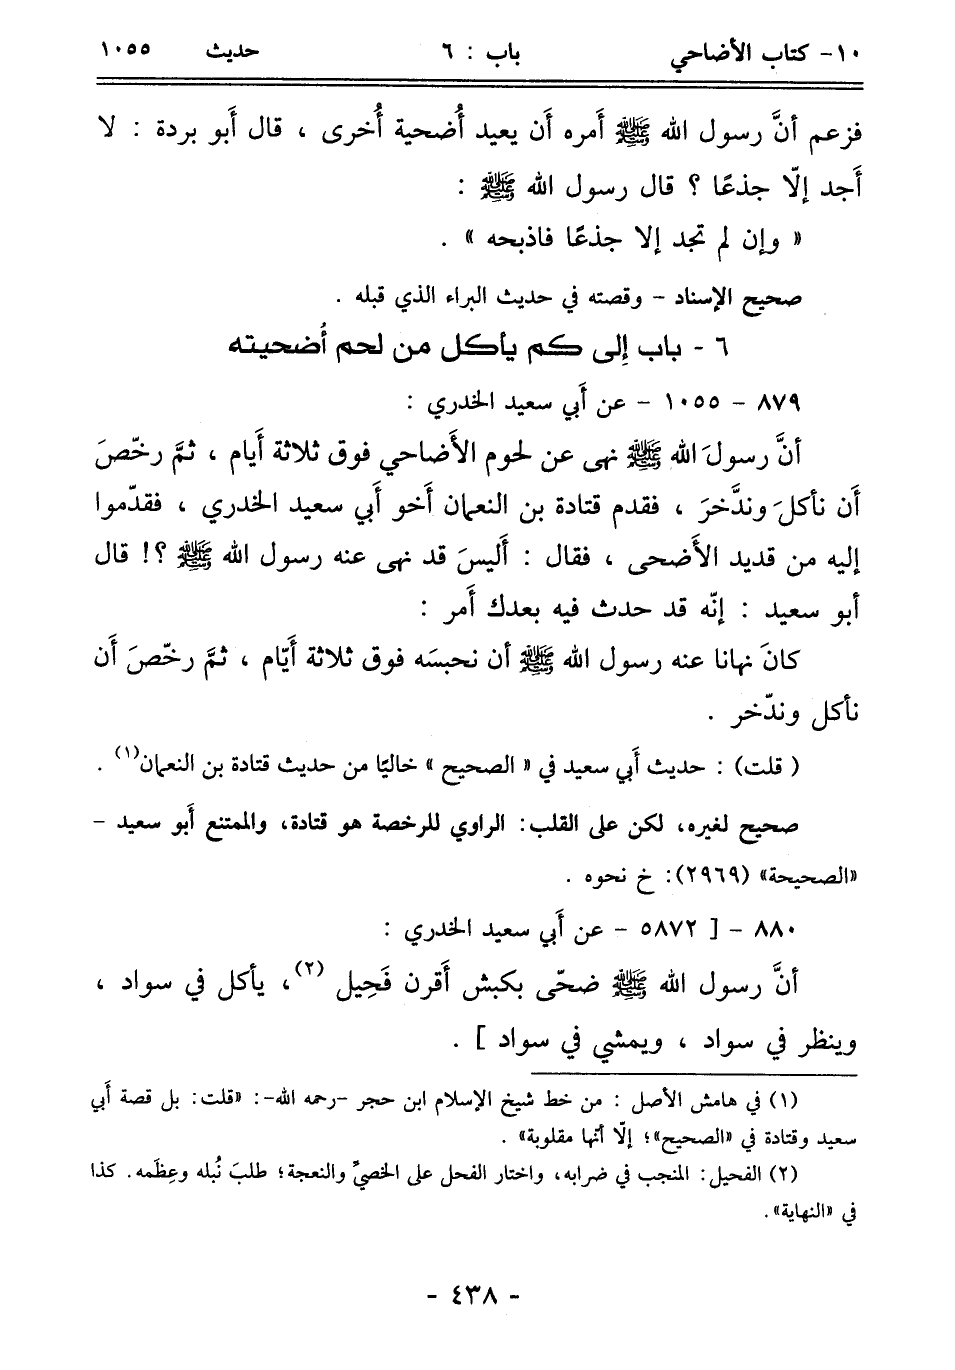 ١٠- كتاب الأضاحي باب : ٦ حديث ١٠٥٥
فزعم أنَّ رسول الله ﷺ أَمره أَن يعيد أُضحية أُخرى ، قال أَبو بردة : لا
أَجد إلّا جذعًا ؟ قال رسول الله ﷺ :
« وإن لم تجد إلا جذعًا فاذبحه » .
صحيح الإسناد - وقصته في حديث البراء الذي قبله .
٦ - باب إلى كم يأكل من لحم أُضحيته
٨٧٩ - ١٠٥٥ - عن أَبي سعيد الخدري :
أنَّ رسولَ الله ﷺ نهى عن لحوم الأَضاحي فوق ثلاثة أَيام ، ثمَّ رخّصَ
أَن نأكلَ وندَّخرَ ، فقدم قتادة بن النعمان أَخو أَبي سعيد الخدري ، فقدّموا
إليه من قديد الأَضحى ، فقال : أَليسَ قد نهى عنه رسول الله ﷺ ؟! قال
أبو سعيد : إنّه قد حدث فيه بعدك أَمر :
كانَ نهانا عنه رسول الله ﷺ أن نحبسَه فوق ثلاثة أَيّام ، ثمَّ رخّصَ أَن
نأكل وندّخر .
( قلت) : حديث أَبي سعيد في « الصحيح » خاليًا من حديث قتادة بن النعمان(١) .
صحيح لغيره، لكن على القلب: الراوي للرخصة هو قتادة، والممتنع أبو سعيد -
«الصحيحة» (٢٩٦٩): خ نحوه .
٨٨٠ - [ ٥٨٧٢ - عن أَبي سعيد الخدري :
أنَّ رسول الله ﷺ ضحّى بكبش أَقرن فَحِيل (٢)، يأكل في سواد ،
وينظر في سواد ، ويمشي في سواد ] .
(١) في هامش الأصل : من خط شيخ الإسلام ابن حجر -رحمه الله-: «قلت: بل قصة أَبي
سعيد وقتادة في «الصحيح»؛ إلّا أنّها مقلوبة» .
(٢) الفحيل: المنجب في ضرابه، واختار الفحل على الخصيِّ والنعجة؛ طلبَ نُبله وعِظَمه. كذا
في «النهاية».
- ٤٣٨ -